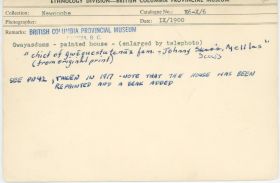 ETHNOLOGY DIVISION—BRITISH COLUMBIA PROVINCIAL MUSEUM
Collection: Newcombe Catalogue No.:
Photographer: Date: IX/1900
Remarks: BRITISH COLUMBIA PROVINCIAL MUSEUM
B. C.
Gwayasdums - painted house - (enlarged by telephoto)
"chief of fam - Johnny
(from original print)
SEE TAKEN IN 1917 - NOTE THAT THE HOUSE HAS BEEN
REPAINTED AND A BEAK ADDED